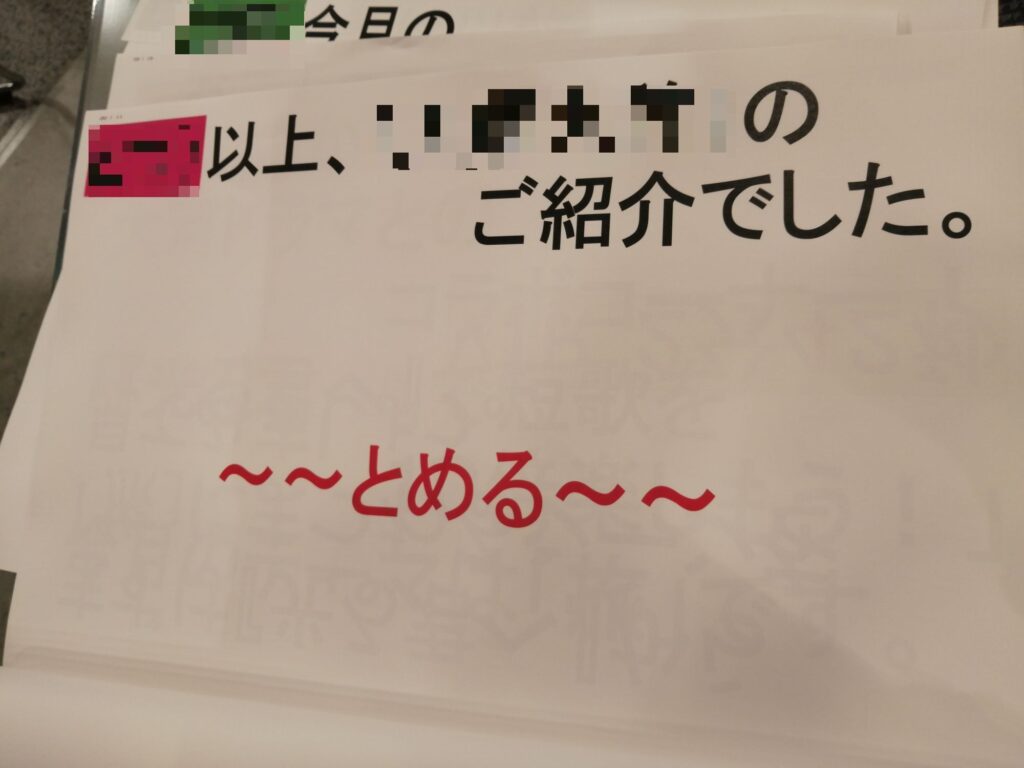 今月の
以上、
の
ご紹介でした。
~~とめる~~